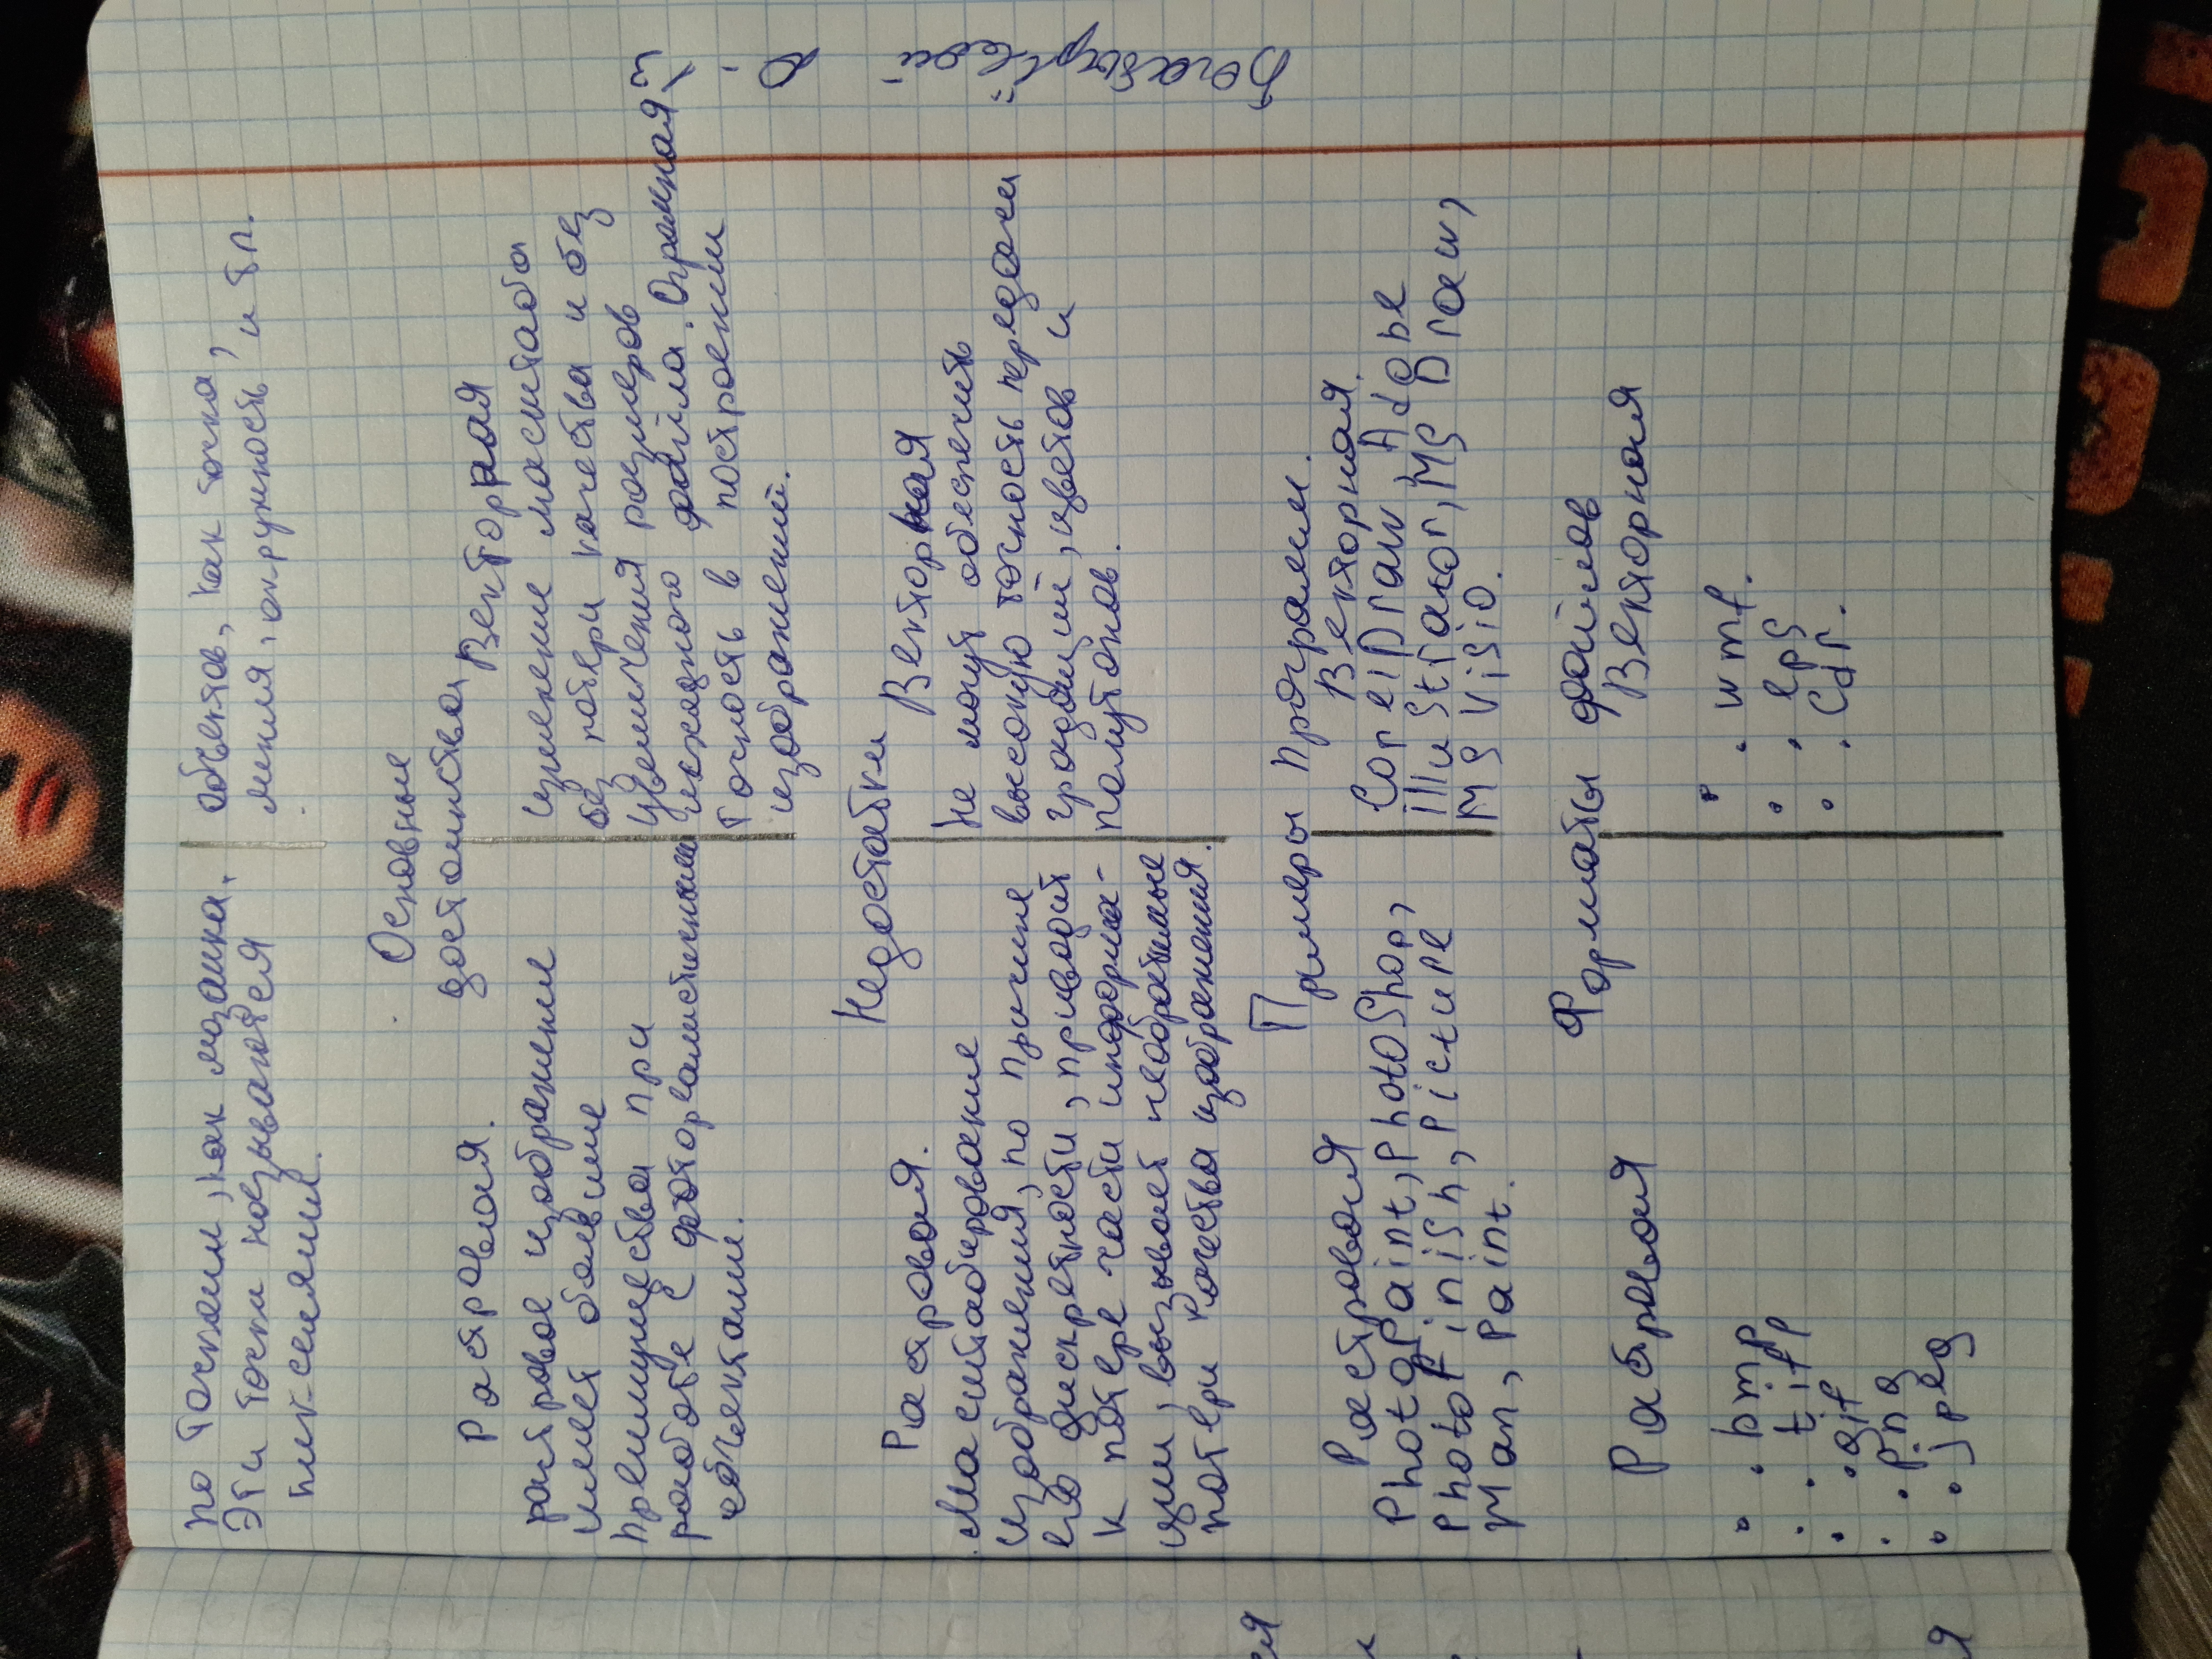 по точкам, как мозаика.
Эти точки называются
пикселями.
объектов, как точка,
линия, окружность и тп.
Основные
достоинства
Растровая.
растровое изображение
имеет большие
преимущества при
работе с фотореалистичными
объектами.
Векторная
изменение масштаба
без потери качества и без
увеличения размеров
исходного файла. Огромная
точность в построении
изображений.
Недостатки
Растровая.
Масштабирование
изображения, по причине
его дискретности, приводит
к потере части информа-
ции, вызывает необратимые
потери качества изображения.
Векторная
Не могут обеспечить
высокую точность передачи
градаций, цветов и
полутонов.
Примеры программ.
Растровая
PhotoPaint, PhotoShop,
PhotoFinish, Picture
Man, Paint.
Векторная.
CorelDraw Adobe
illustrator, MS Draw,
MS Visio.
Форматы файлов
Растровая
• bmp
• tiff
• gif
• png
• jpeg
Векторная
• wmf.
• eps
• cdr.